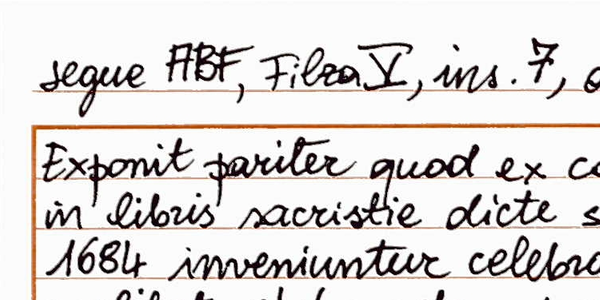 segue ABF, Filza V, ins. 7,
Exponit pariter quod ex
in libris sacristie dicte
1684 inveniuntur